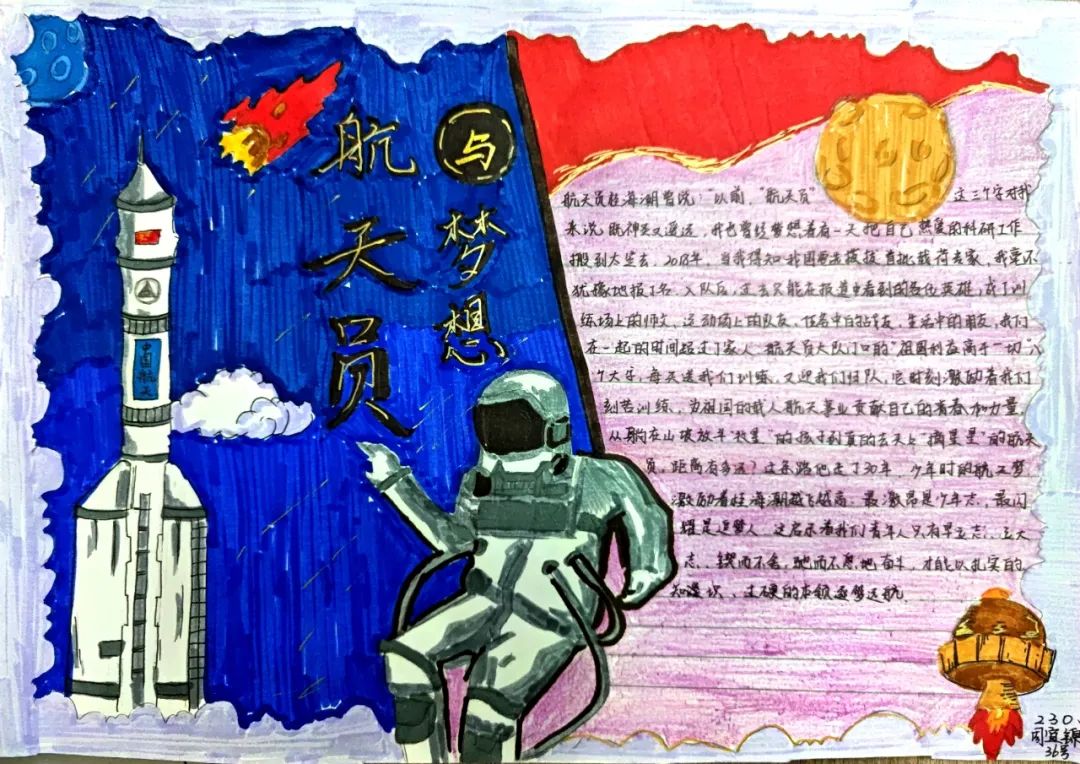 航天员
与
梦想
中国航天
航天员桂海潮曾说："以前，"航天员" 这三个字对我
来说既神圣又遥远，我也曾经梦想着有一天把自己热爱的科研工作
搬到太空去。2018年，当我得知我国要选拔首批载荷专家，我毫不
犹豫地报了名。入队后，过去只能在报道中看到的各位英雄，成了训
练场上的师父、运动场上的队友、任务中的战友、生活中的朋友，我们
在一起的时间超过了家人。航天员大队门口的"祖国利益高于一切"八
个大字，每天送我们训练，又迎我们归队，它时刻激励着我们
刻苦训练，为祖国的载人航天事业贡献自己的青春和力量。
从躺在山坡放牛"数星"的孩子到真的去天上"摘星星"的航天
员，距离有多远？这条路他走了30年，少年时的航天梦
激励着桂海潮越飞越高。最激昂是少年志，最闪
耀是追梦人。这启示着我们青年人只有早立志、立大
志、锲而不舍，驰而不息地奋斗，才能以扎实的
知识、过硬的本领逐梦远航。
230
36号